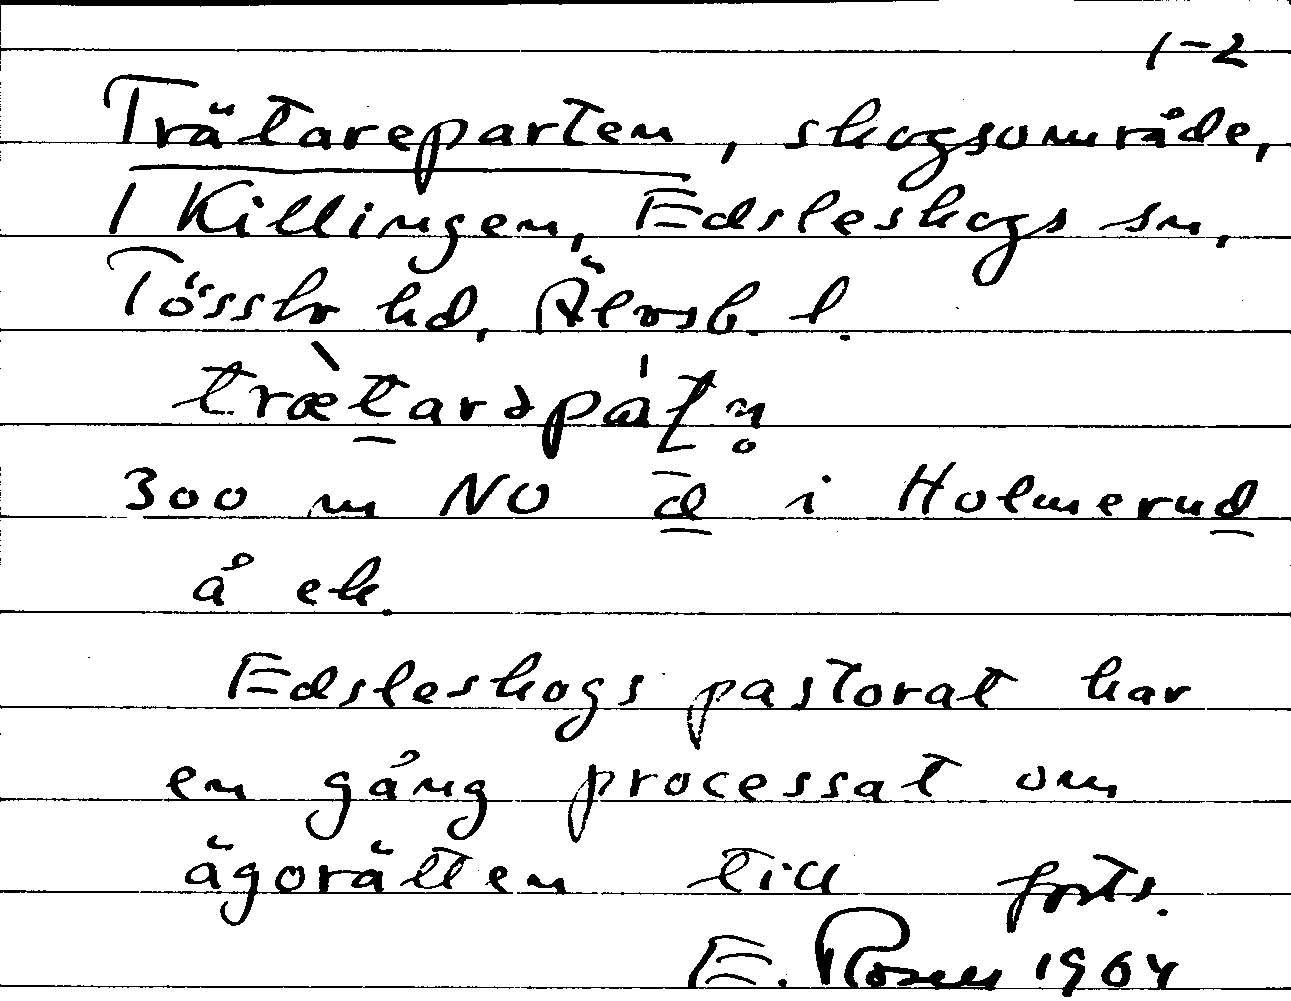 1-2
Trätareparten, skogsområde,
1 Killingen, Edsleskogs sn,
Tössbo hd, Älvsb. l.
300 m NO d i Holmerud
å ek.
Edsleskogs pastorat har
en gång processat om
ägorätten till forts.
E. Rosell 1964